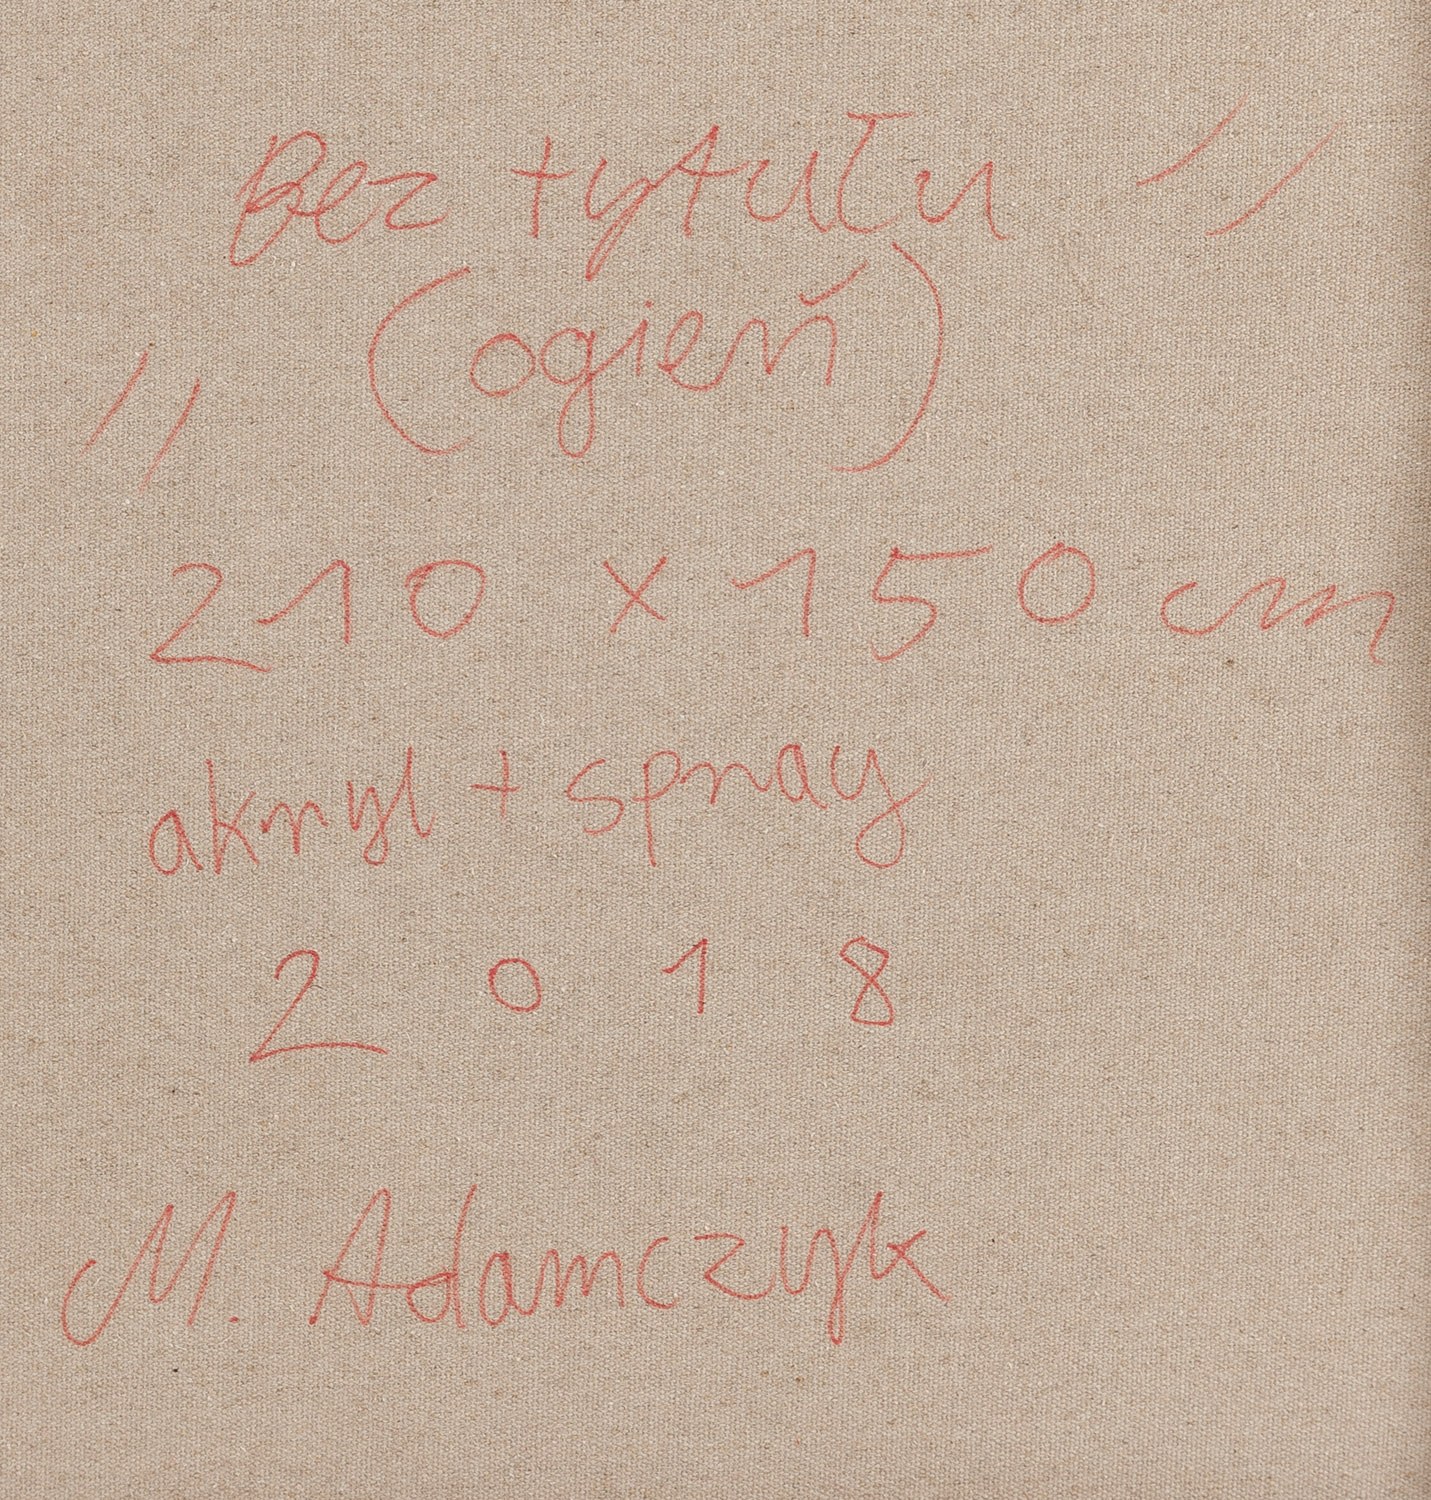 Bez tytułu ”
„ (ogień)
210 x 150 cm
akryl + spray
2018
M. Adamczyk